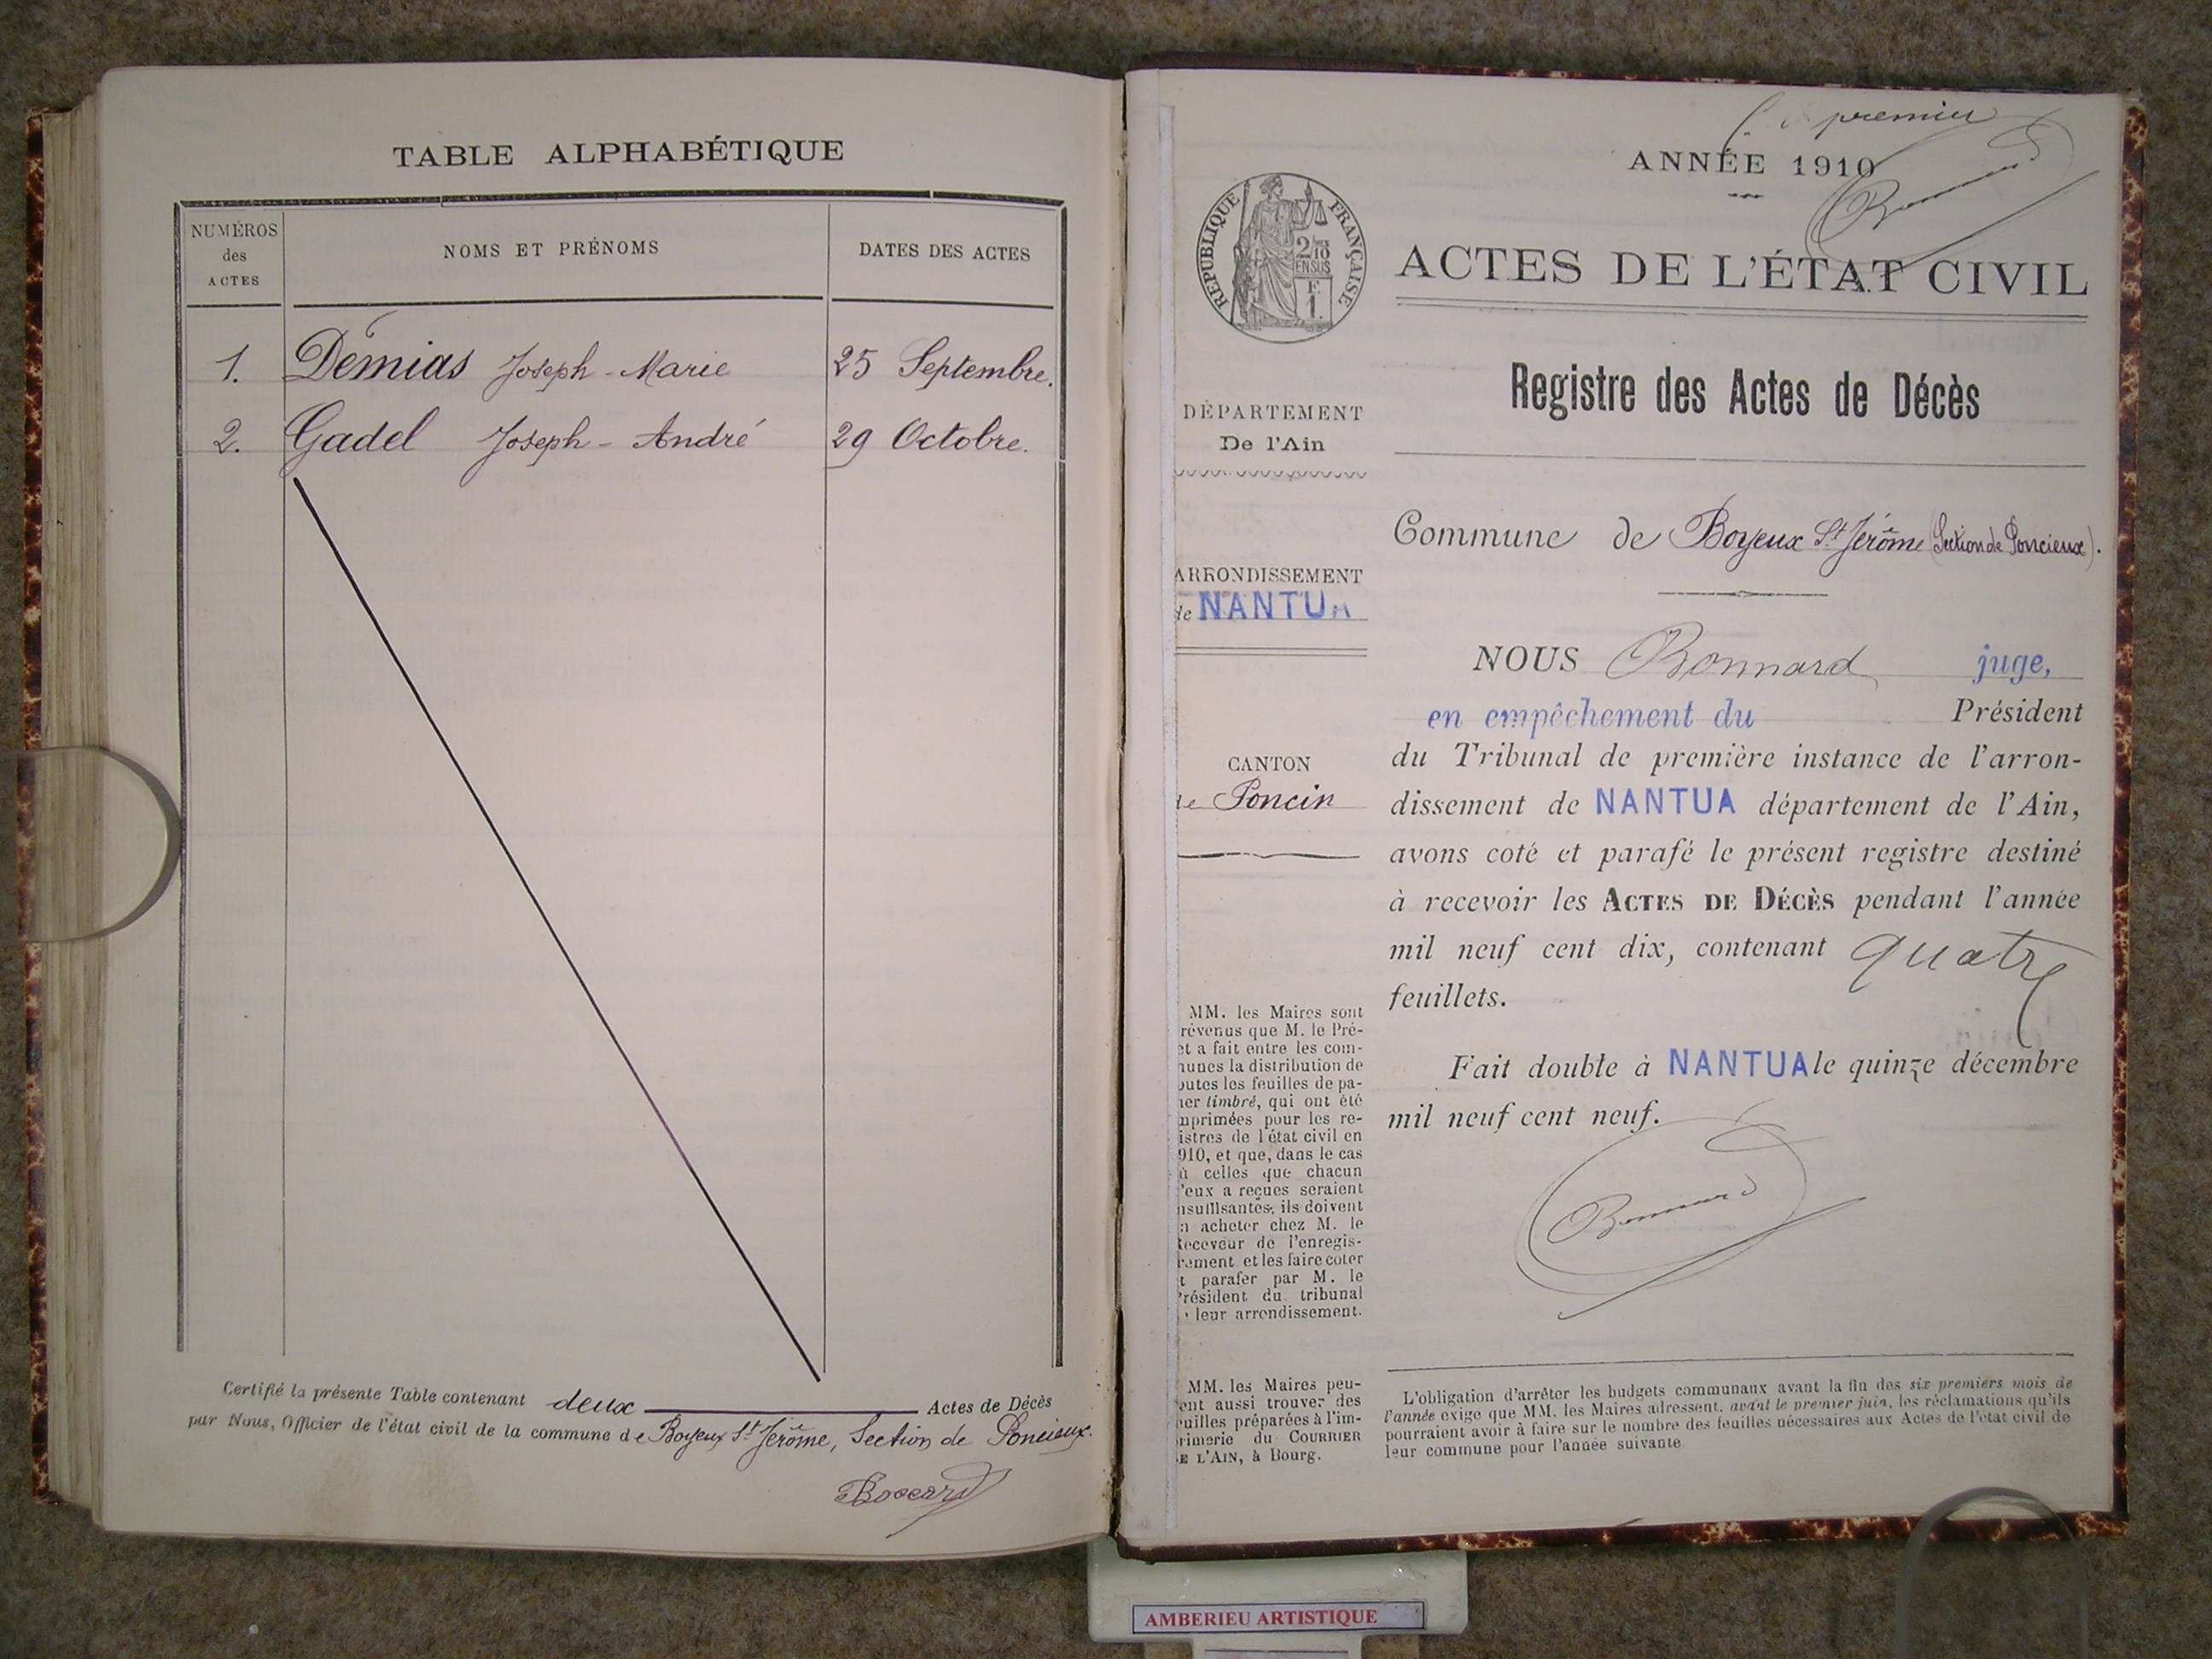 TABLE ALPHABÉTIQUE
NUMÉROS des ACTES
NOMS ET PRÉNOMS
DATES DES ACTES
1. Démias Joseph-Marie 25 Septembre.
2. Gadel Joseph-André 29 Octobre.
Certifié la présente Table contenant deux Actes de Décès
par Nous, Officier de l'état civil de la commune de Boyeux St Jérôme, Section de Poncieux.
Boccard
premier
ANNÉE 1910
Bonnard
RÉPUBLIQUE FRANÇAISE
2/10 EN SUS
F. 1.
ACTES DE L'ÉTAT CIVIL
Registre des Actes de Décès
DÉPARTEMENT
De l'Ain
Commune de Boyeux St Jérôme (Section de Poncieux).
ARRONDISSEMENT
de NANTUA
CANTON
de Poncin
NOUS Bonnard juge,
en empêchement du Président
du Tribunal de première instance de l'arron-
dissement de NANTUA département de l'Ain,
avons coté et parafé le présent registre destiné
à recevoir les ACTES DE DÉCÈS pendant l'année
mil neuf cent dix, contenant quatre
feuillets.
Fait double à NANTUA le quinze décembre
mil neuf cent neuf.
Bonnard
MM. les Maires sont
révenus que M. le Pré-
et a fait entre les com-
nunes la distribution de
outes les feuilles de pa-
ier timbré, qui ont été
mprimées pour les re-
istres de l'état civil en
910, et que, dans le cas
ù celles que chacun
'eux a reçues seraient
nsuffisantes, ils doivent
n acheter chez M. le
Receveur de l'enregis-
rement et les faire coter
t parafer par M. le
Président du tribunal
leur arrondissement.
MM. les Maires peu-
ent aussi trouver des
euilles préparées à l'im-
rimerie du COURRIER
E L'AIN, à Bourg.
L'obligation d'arrêter les budgets communaux avant la fin des six premiers mois de
l'année exige que MM. les Maires adressent, avant le premier juin, les réclamations qu'ils
pourraient avoir à faire sur le nombre des feuilles nécessaires aux Actes de l'état civil de
leur commune pour l'année suivante
AMBERIEU ARTISTIQUE